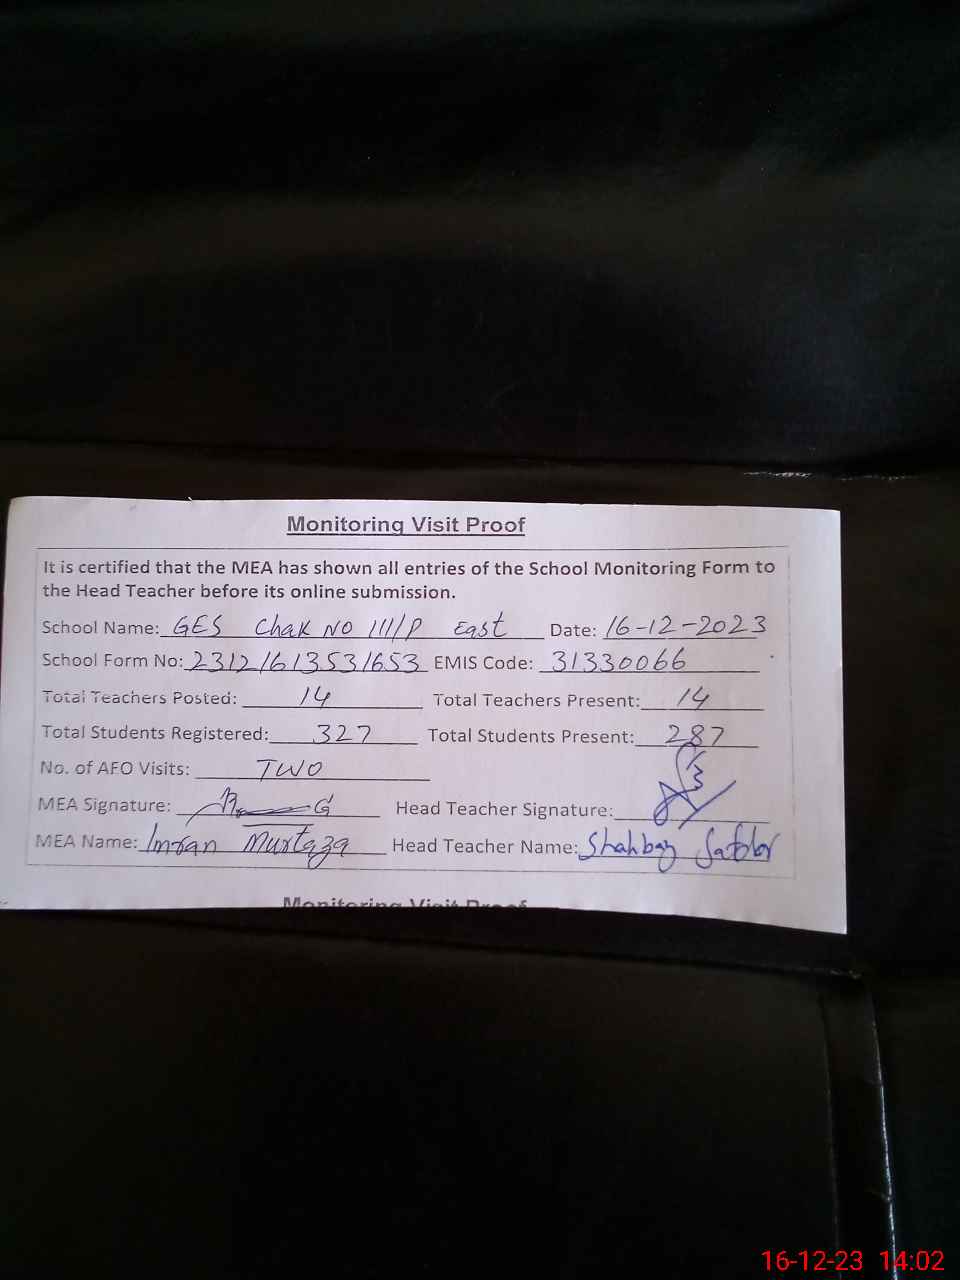 Monitoring Visit Proof
It is certified that the MEA has shown all entries of the School Monitoring Form to
the Head Teacher before its online submission.
School Name: GES Chak NO 111/P East Date: 16-12-2023
School Form No: 23121613531653 EMIS Code: 31330066
Total Teachers Posted: 14 Total Teachers Present: 14
Total Students Registered: 327 Total Students Present: 287
No. of AFO Visits: TWO
MEA Signature: Head Teacher Signature:
MEA Name: Imran Murtaza Head Teacher Name: Shahbaz
Monitoring Visit Proof
16-12-23 14:02